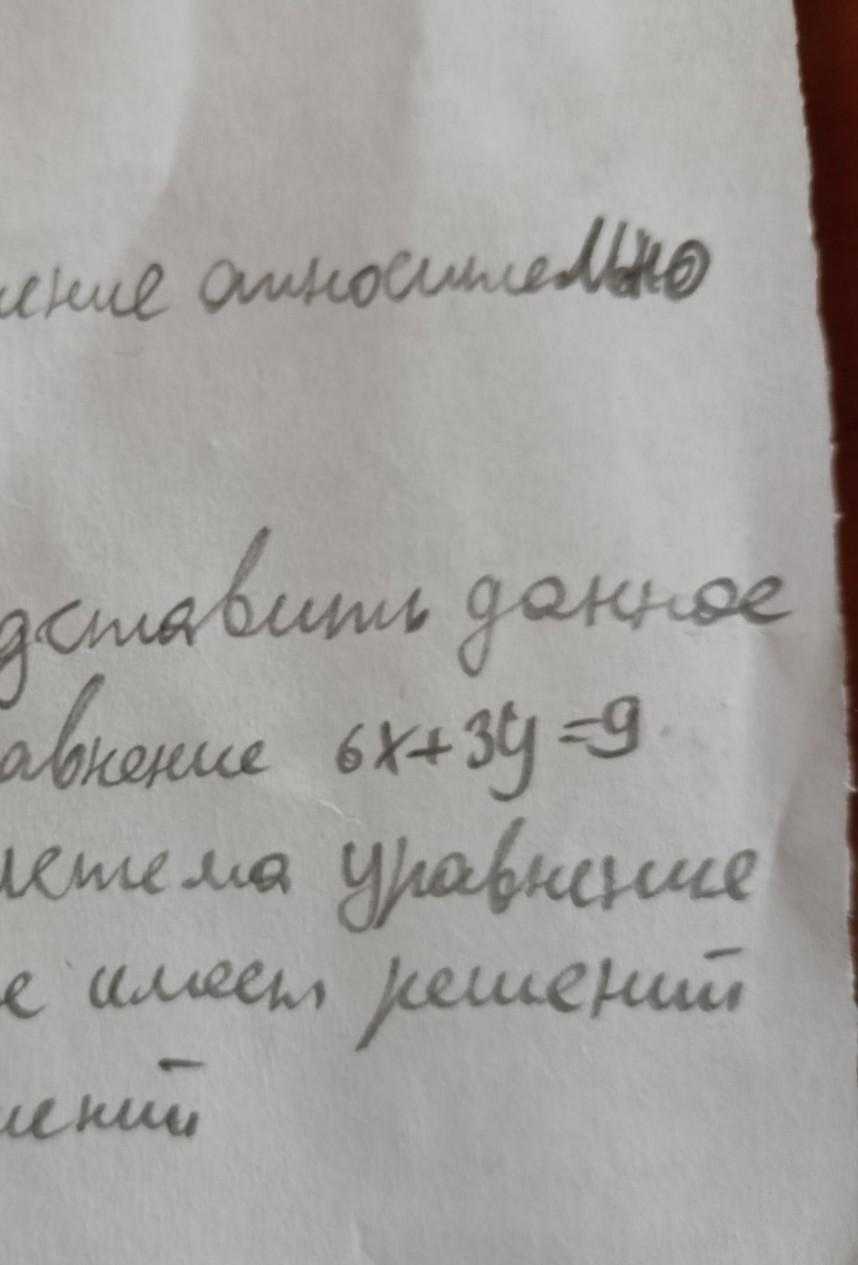 ение относительно
дставить данное
авнение 6x+3y=9
стема уравнение
е имеет решений
шений